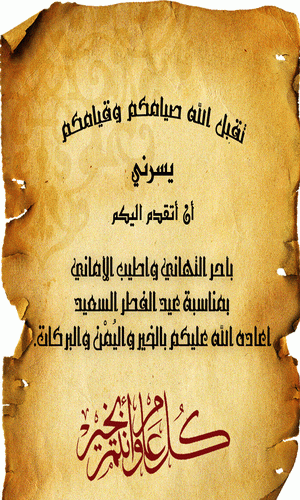 تقبل الله صيامكم وقيامكم
يسرني
أن أتقدم اليكم
باحر التهاني واطيب الاماني
بمناسبة عيد الفطر السعيد
اعاده الله عليكم بالخير واليُمْن والبركات.
كل عام وأنتم بخير